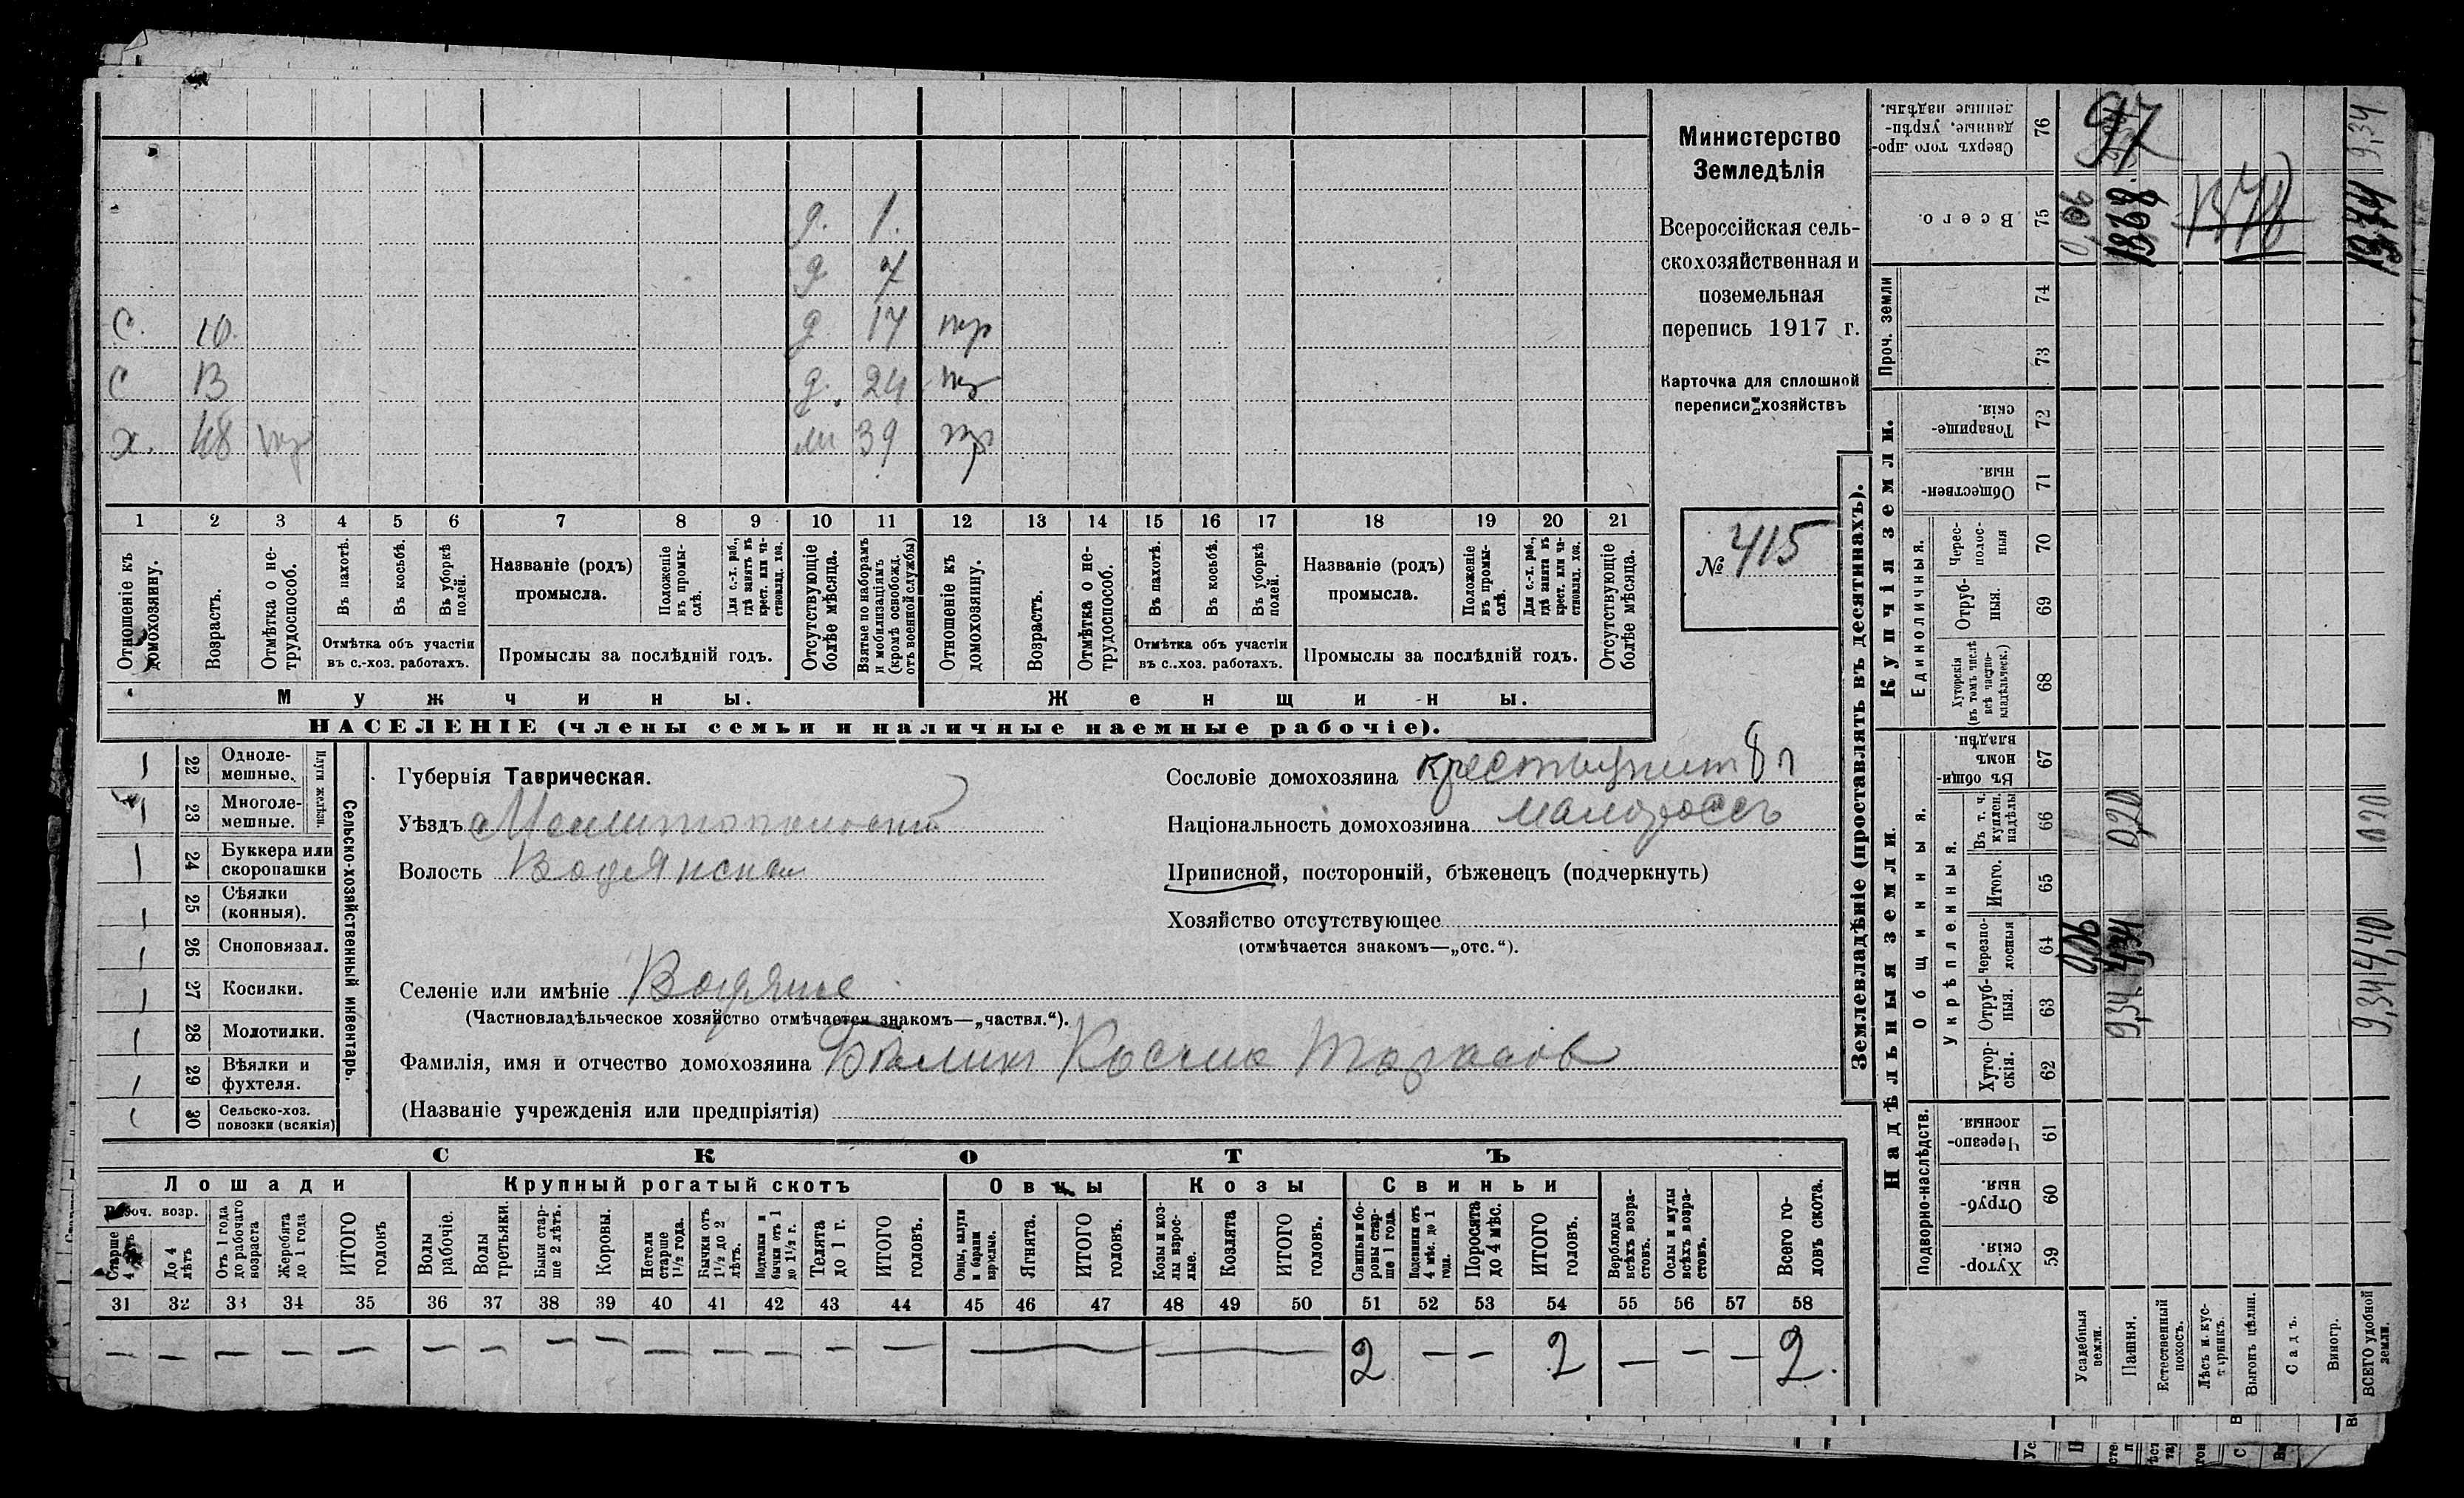 Министерство
Земледѣлія
Всероссійская сель-
скохозяйственная и
поземельная
перепись 1917 г.
Карточка для сплошной
переписи хозяйствъ
№ 415
д. 1.
д 7
С. 10.
д 17 нр
С 13
д. 24 нр
х. 48 нр
ж 39 нр
1 2 3 4 5 6 7 8 9 10 11 12 13 14 15 16 17 18 19 20 21
Отношеніе къ домохозяину.
Возрастъ.
Отмѣтка о не-трудоспособ.
Въ пахотѣ.
Въ косьбѣ.
Въ уборкѣ полей.
Отмѣтка объ участіи
въ с.-хоз. работахъ.
Названіе (родъ)
промысла.
Положеніе въ промы-слѣ.
Для с.-х. раб., гдѣ занятъ въ крест. или ча-стновлад. хоз.
Промыслы за послѣдній годъ.
Отсутствующіе болѣе мѣсяца.
Взятые по наборамъ и мобилизаціямъ (кромѣ освобожд. отъ военной службы)
Отношеніе къ домохозяину.
Возрастъ.
Отмѣтка о не-трудоспособ.
Въ пахотѣ.
Въ косьбѣ.
Въ уборкѣ полей.
Отмѣтка объ участіи
въ с.-хоз. работахъ.
Названіе (родъ)
промысла.
Положеніе въ промы-слѣ.
Для с.-х. раб., гдѣ занята въ крест. или ча-стновлад. хоз.
Промыслы за послѣдній годъ.
Отсутствующіе болѣе мѣсяца.
Мужчины.
Женщины.
НАСЕЛЕНІЕ (члены семьи и наличные наемные рабочіе).
Сельско-хозяйственный инвентарь.
Плуги желѣзн.
22 Одноле-мешные.
23 Многоле-мешные.
24 Буккера или скоропашки
25 Сѣялки (конныя).
26 Сноповязал.
27 Косилки.
28 Молотилки.
29 Вѣялки и фухтеля.
30 Сельско-хоз. повозки (всякія)
Губернія Таврическая.
Уѣздъ Мелитопольскій
Волость Водянская
Селеніе или имѣніе Водяное
(Частновладѣльческое хозяйство отмѣчается знакомъ—„частвл.“).
Фамилія, имя и отчество домохозяина Косма Тарасов
(Названіе учрежденія или предпріятія)
Сословіе домохозяина крестьянин
Національность домохозяина малороссъ
Приписной, посторонній, бѣженецъ (подчеркнуть)
Хозяйство отсутствующее
(отмѣчается знакомъ—„отс.“).
СКОТЪ
Лошади
Крупный рогатый скотъ
Овцы
Козы
Свиньи
Рабоч. возр.
Старше 4 лѣтъ
До 4 лѣтъ
Отъ 1 года до рабочаго возраста
Жеребята до 1 года
ИТОГО головъ
Волы рабочіе.
Волы третьяки.
Быки стар-ше 2 лѣтъ.
Коровы.
Нетели старше 1½ года.
Бычки отъ 1½ до 2 лѣтъ.
Подтелки и бычки отъ 1 до 1½ г.
Телята до 1 г.
ИТОГО головъ.
Овцы, валухи и бараны взрослые.
Ягнята.
ИТОГО головъ.
Козы и коз-лы взрос-лые.
Козлята
ИТОГО головъ.
Свиньи и бо-ровы стар-ше 1 года.
Подсвинки отъ 4 мѣс. до 1 года.
Поросята до 4 мѣс.
ИТОГО головъ.
Верблюды всѣхъ возра-стовъ.
Ослы и мулы всѣхъ возра-стовъ.
Всего го-ловъ скота.
31 32 33 34 35 36 37 38 39 40 41 42 43 44 45 46 47 48 49 50 51 52 53 54 55 56 57 58
— — — — — — — — — — — — — — — — 2 — — 2 — — — 2.
Землевладѣніе (проставлять въ десятинахъ).
Купчія земли.
Надѣльныя земли.
Проч. земли
Единоличныя.
Общинныя.
Укрѣпленныя.
Подворно-наслѣдств.
Сверхъ того про-данные, укрѣп-ленные надѣлы. 76
Всего. 75
74
73
Товарище-скія. 72
Обществен-ныя. 71
Черес-полос-ныя 70
Отруб-ныя. 69
Хуторскія (въ томъ числѣ всѣ частно-владѣльческ.) 68
Въ общи-номъ владѣн. 67
Въ т. ч. куплен. надѣлы 66
Итого. 65
Черезпо-лосныя 64
Отруб-ныя. 63
Хутор-скія. 62
Черезпо-лосныя. 61
Отруб-ныя 60
Хутор-скія. 59
Усадебныя земли.
Пашня.
Естественный покосъ.
Лѣсъ и кус-тарникъ.
Выгонъ цѣлин.
Садъ.
Виногр.
ВСЕГО удобной земли.
97
0,06
0,06
9,34
0,20
9,34
4,40
0,20
9,34